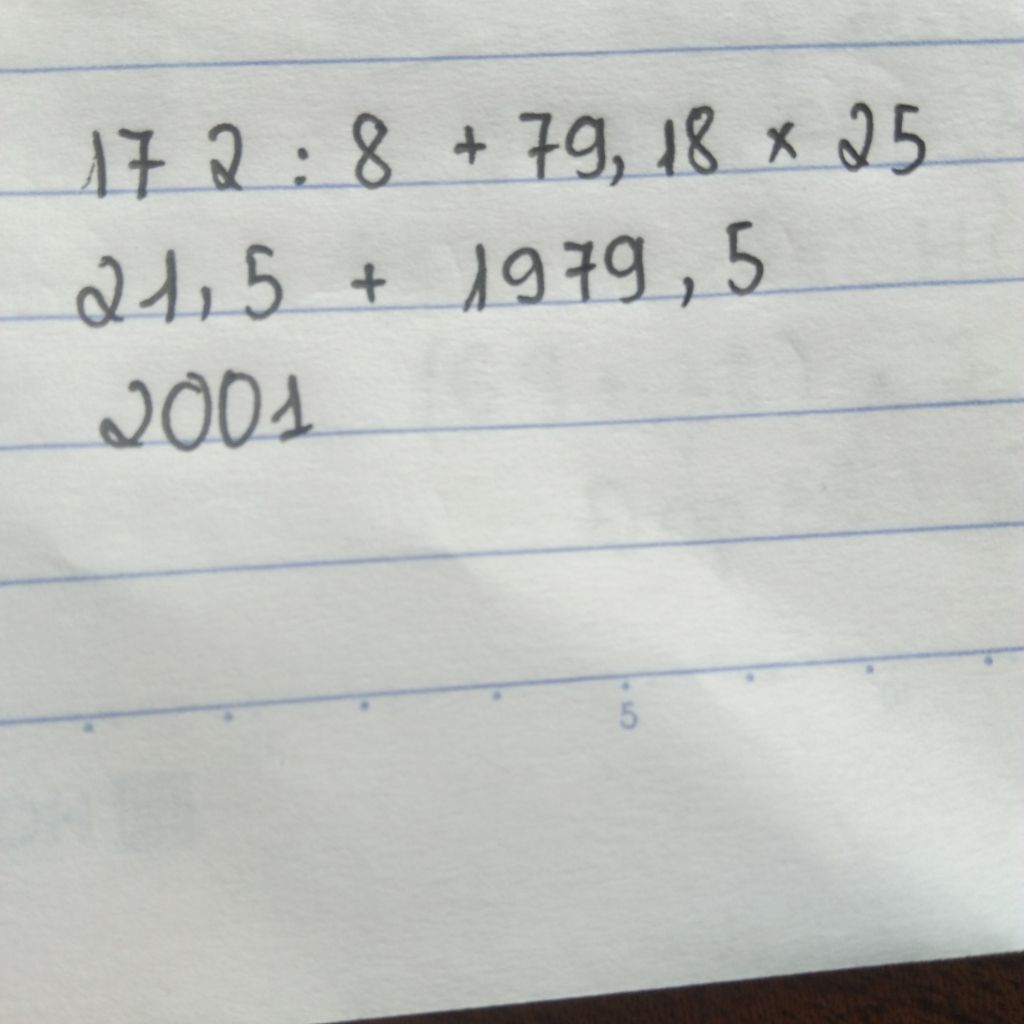 172 : 8 + 79,18 × 25
21,5 + 1979,5
2001
5